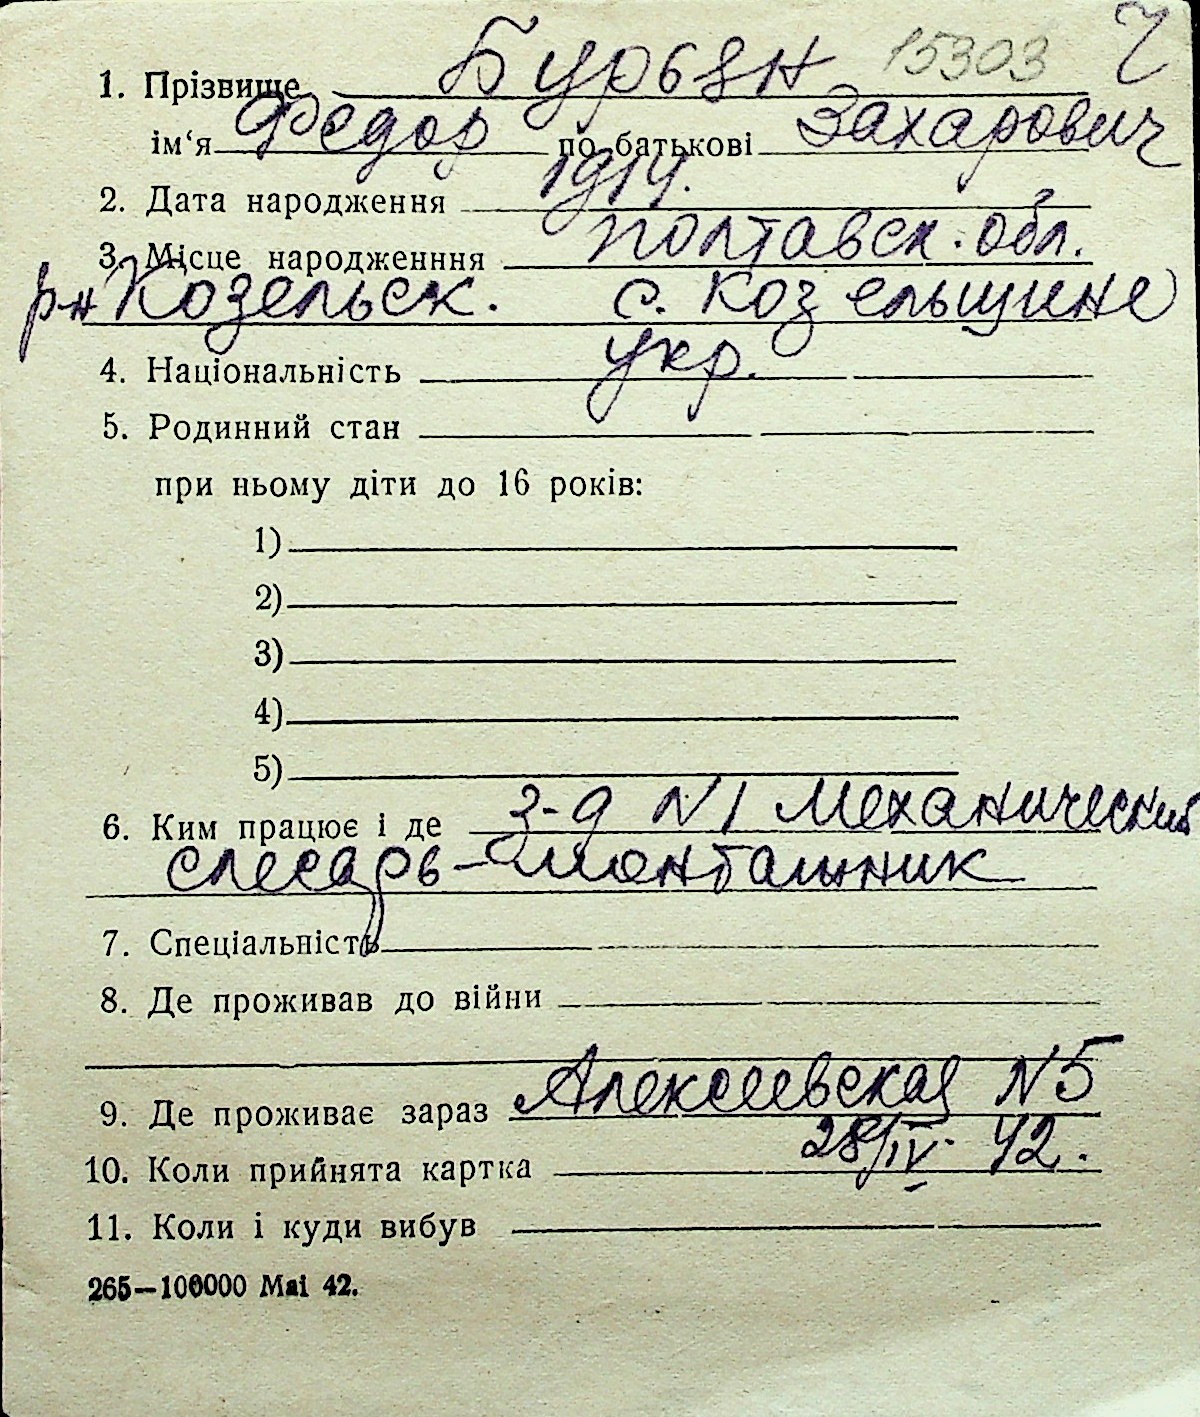 15303 Ч
1. Прізвище Бурьян
ім‘я Федор по батькові Захарович
2. Дата народження 1914.
3. Місце народженння полтавск. обл.
р-н Козельск. с. Козельщине
4. Національність укр.
5. Родинний стан
при ньому діти до 16 років:
1)
2)
3)
4)
5)
6. Ким працює і де з-д N 1 Механический
слесарь-монтальник
7. Спеціальність
8. Де проживав до війни
9. Де проживає зараз Алексеевская N 5
10. Коли прийнята картка 28/IV. 42.
11. Коли і куди вибув
265—100000 Mai 42.